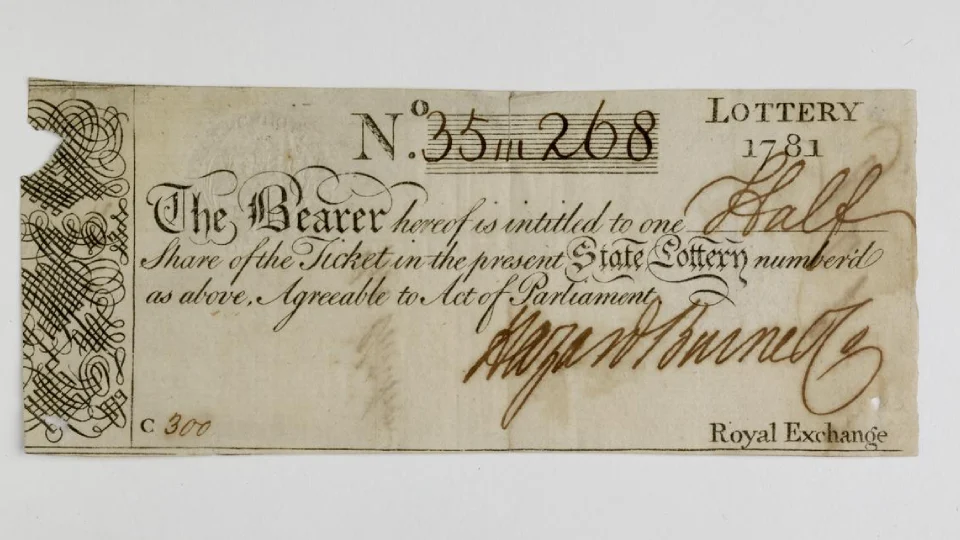 No. 35m268
LOTTERY
1781
The Bearer hereof is intitled to one Half
Share of the Ticket in the present State Lottery number'd
as above, Agreeable to Act of Parliament
Hazard Burne & Co
C 300
Royal Exchange